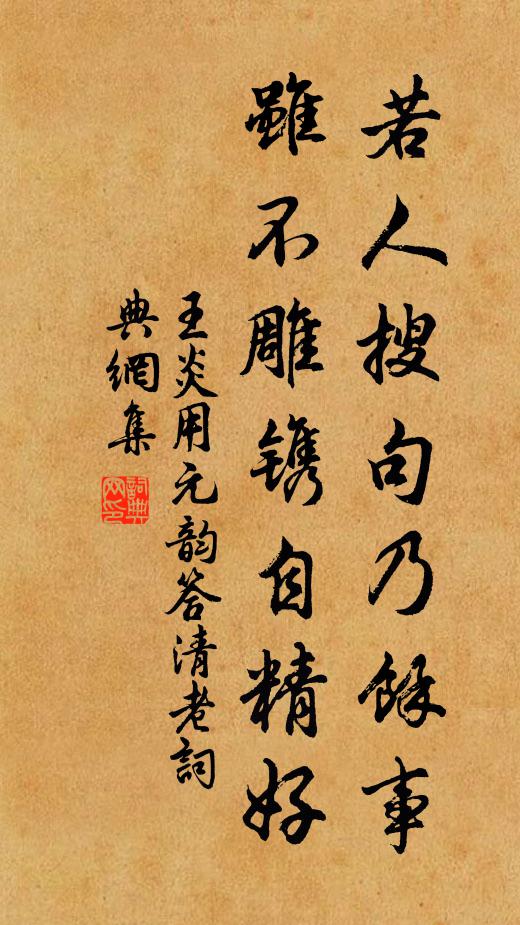 若人搜句乃餘事
雖不雕镌自精好
王炎用元韵答清老詞
典網集
詞典網印